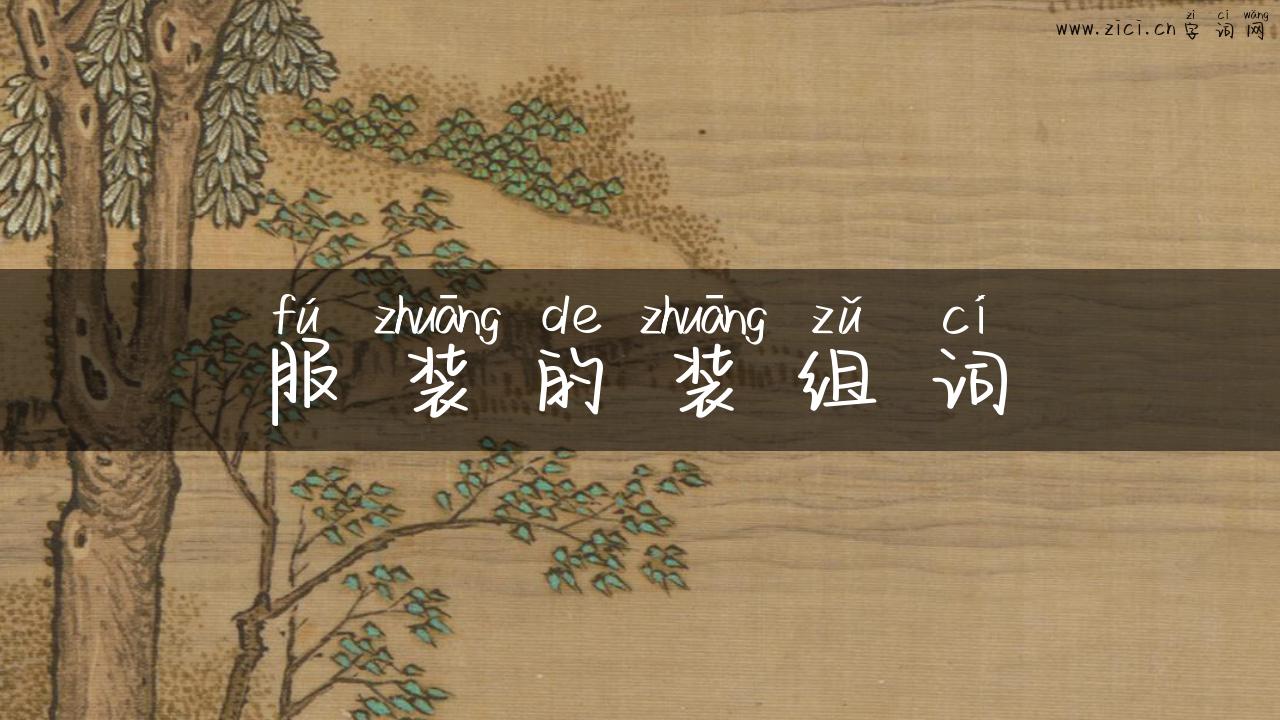 zì cí wǎng
www.zici.cn 字词网
fú zhuāng de zhuāng zǔ cí
服装的装组词